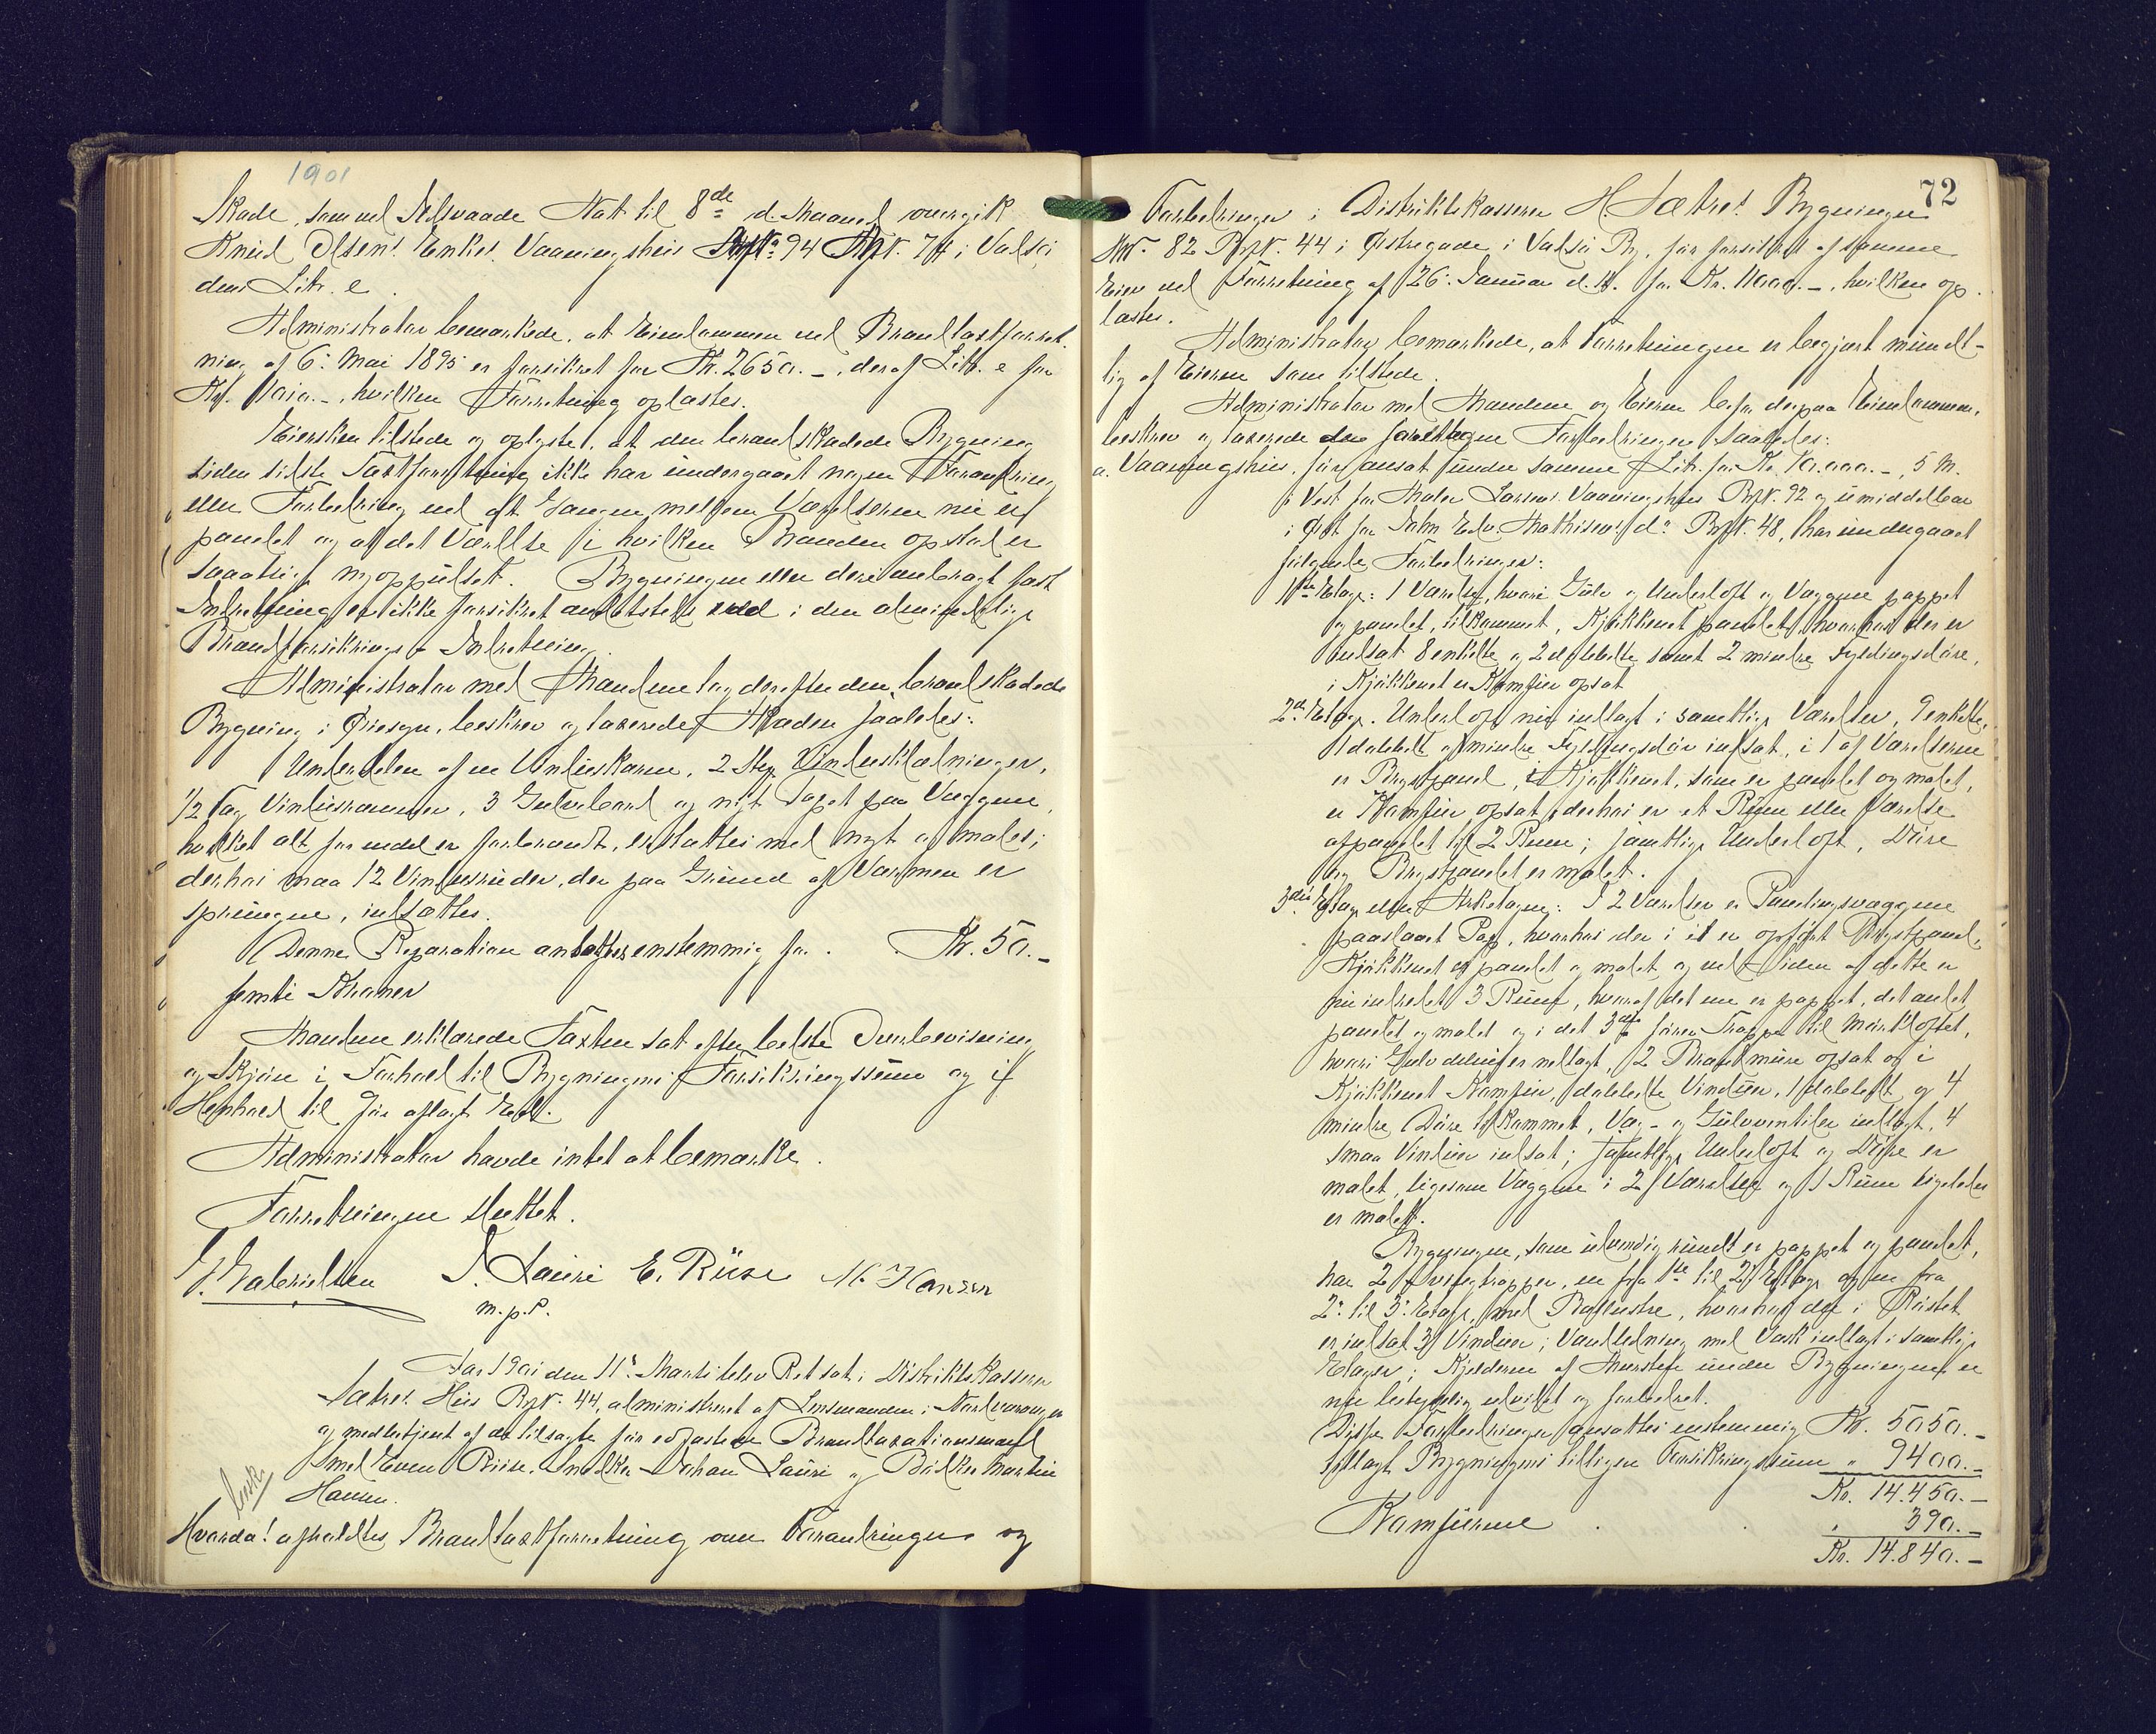 1901
Skade, som ved Ildsvaade Nat til 8de d. Maaned overgik
Knud Olsens Enkes Vaaningshus No 94 BpN. 74 i Vadsø
dens Litr. e.
Administrator bemærkede, at Eiendommen ved Brandtaxtforret-
ning af 6. Mai 1895 er forsikret for Kr. 2650.-, deraf Litr. e for
Kr. , hvilken Forretning oplæstes.
Eiersken tilstede og oplyste, at den brandskadede Bygning
siden sidste Taxtforretning ikke har undergaaet nogen Forandring
eller Forbedring ved at Gangen mellem Værelserne nu er
panelet og at det Værelse i hvilken Branden opstod er
nyoppudset. Bygningen eller deri anbragt fast
Indretning er ikke forsikret andetsteds end i den almindelige
Brandforsikrings-Indretning.
Administrator med Mændene tog derefter den brandskadede
Bygning i Øiesyn, beskrev og taxerede Skaden saaledes:
Underdelen af en Vindueskarm, 2 Stkr. Vinduesklædninger,
1/2 Fag Vinduesrammer, 3 Gulvbord og nyt Tapet paa Væggene,
hvilket alt for endel er forbrændt, erstattes med nyt og males;
derhos maa 12 Vinduesruder, der paa Grund af Varmen er
sprungne, indsættes.
Denne Reparation ansættes enstemmig for . Kr. 50.-
femti Kroner
Mændene erklærede Taxten sat efter bedste Overbevisning
og Skjøn i Forhold til Bygningens Forsikringssum og i
Henhold til før aflagt Ed.
Administrator havde intet at bemærke.
Forretningen sluttet.
J. Gabrielsen J. Lauri E. Riise M. Hansen
m.p.P.
Aar 1901 den 11te Marts blev Ret sat i Distriktskasserer
Sætres Hus BpN. 44, administreret af Lensmanden i Nordvaranger
og medbetjent af de tilsagte før edfæstede Brandtaxationsmænd
Smed Even Riise, Snedker Johan Lauri og Bødker Martin
Hansen.
besk.
Hvorda! afholdtes Brandtaxtforretning over Forandringer og
72
Forbedringer i Distriktskasserer H. Sætres Bygninger
MN. 82 BpN. 44 i Østregade i Vadsø By, før forsikret af samme
Eier ved Forretning af 26. Januar d. A. for Kr. 11000.-, hvilken op-
læstes.
Administrator bemærkede, at Forretningen er begjært mundt-
lig af Eieren som tilstede.
Administrator med Mændene og Eieren besaa derpaa Eiendommen,
beskrev og taxerede den foretagne Forbedringer saaledes:
a. Vaaningshus, før ansat under samme Litr. for Kr. 10.000.-, 5 M.
i Vest for Maler Larsens Vaaningshus BpN. 92 og umiddelbar
i Øst for Edv. Mathisens do BpN. 48, har undergaaet
følgende Forbedringer:
1ste Etage: 1 Værelse, hvori Gulv og Underloft og Væggene pappet
og panelet, tilkommet, Kjøkkenet panelet, hvorhos der er
indsat 8 enkelte og 2 dobbelte samt 2 mindre Fyldingsdøre,
i Kjøkkenet er Komfur opsat
2den Etage. Underloft nu indlagt i samtlige Værelser, 9 enkelte,
1 dobbelt og mindre Fyldingsdør indsat, i 1 af Værelserne
er Brystpanel, i Kjøkkenet, som er panelet og malet,
er Komfur opsat, derhos er et Rum eller Værelse
afpanelet til 2 Rum; samtlige Underloft, Døre
og Brystpanelet er malet.
3die Etage eller Arketagen: I 2 Værelser er Panelingsvæggene
paaslaaet Pap, hvorhos der i et er opført Brystpanel,
Kjøkkenet er panelet og malet og ved Siden af dette er
nu indredet 3 Rum, hvoraf det ene er pappet, det andet
panelet og malet og i det 3die fører Trappe til Mørkloftet,
hvori Gulv er nedlagt, 2 Brandmure opsat og i
Kjøkkenet Komfur, dobbelte Vinduer, 1 dobbelt og 4
mindre Døre tilkommet, Væg- og Gulvventiler indlagt, 4
smaa Vinduer indsat; samtlige Underloft og Døre er
malet, ligesom Væggene i 2 Værelser og 1 Rum ligeledes
er malet.
Bygningen, som udvendig rundt er pappet og panelet,
har 2 Svingtrapper, en fra 1ste til 2den Etage og en fra
2. til 3. Etage, med Ballustre, hvorhos der i Røstet
er indsat 3 Vinduer; Vandledning med Vask indlagt i samtlige
Etager; Kjelderen af Mursten under Bygningen er
nu betydelig udvidet og forbedret.
Disse Forbedringer ansættes enstemmig Kr. 5050.-
tillagt Bygningens tidligere Forsikringssum " 9400.-
Kr. 14.450.-
Komfurene . . . 390.-
Kr. 14.840.-